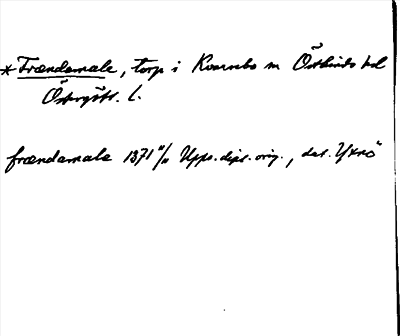 * Frændamale, torp i Kvarsebo sn Östkinds hd
Östergötl. l.
frændamale 1371 11/11 Upps. dipl. orig., dat. Yxnö